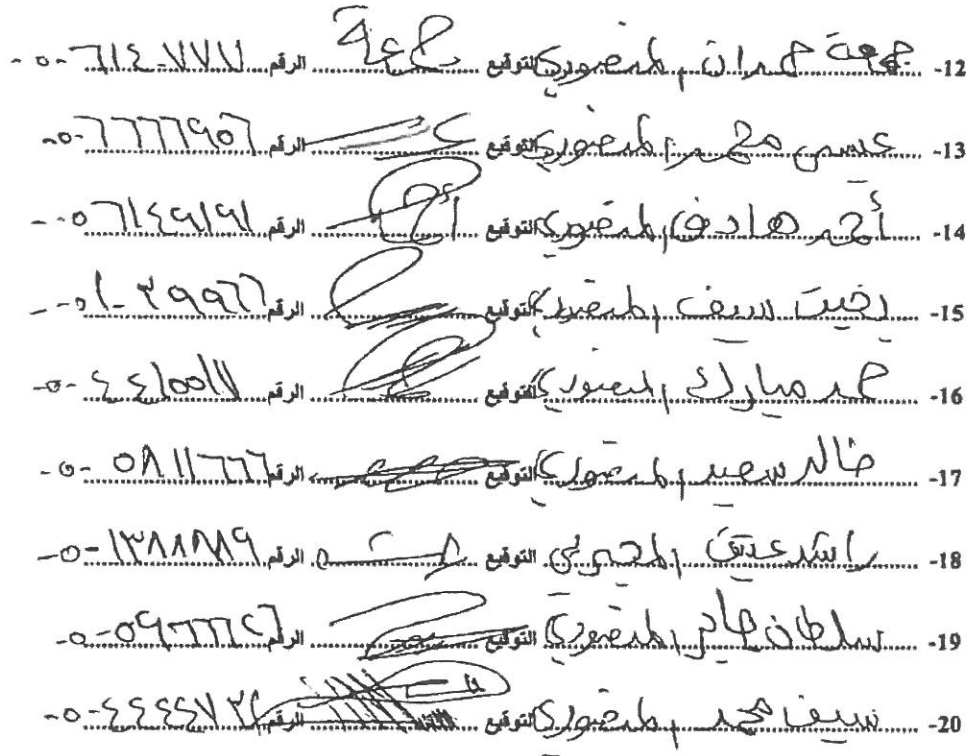 12- جمعة حمدان المنصوري التوقيع جمعة الرقم ٠٥٠-٦١٤٠٧٧٧
13- عيسى محمد المنصوري التوقيع الرقم ٠٥٠-٦٦٦٦٩٥٦
14- أحمد هادف المنصوري التوقيع الرقم ٠٥٠-٦١٤٩١٩١
15- بخيت سيف المنصوري التوقيع الرقم
16- حمد مبارك المنصوري التوقيع الرقم ٠٥٠-٤٤١٥٥١٧
17- خالد سعيد المنصوري التوقيع الرقم ٠٥٠-٥٨١١٦٦٦
18- راشد عتيق التوقيع الرقم ٠٥٠-١٣٨٨٨٨٩
19- سلطان جابر المنصوري التوقيع الرقم ٠٥٠-٥٩٦٦٦٢٦
20- سيف محمد المنصوري التوقيع الرقم